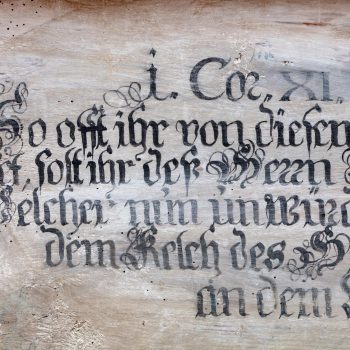 i. Cor. XI.
So offt ihr von diesen
solt ihr deß Herrn
Welcher nun unwürd
dem Kelch des
an dem